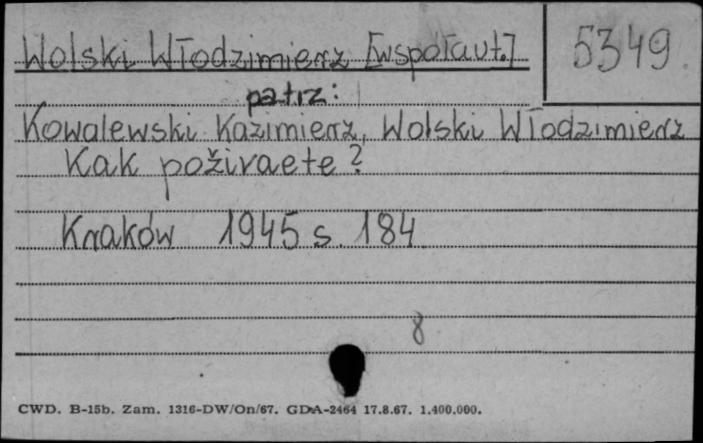 Wolski Włodzimierz [współaut.]
5349
patrz:
Kowalewski Kazimierz, Wolski Włodzimierz
Kak poživaete?
Kraków 1945 s. 184
8
CWD. B-15b. Zam. 1316-DW/On/67. GDA-2464 17.8.67. 1.400.000.